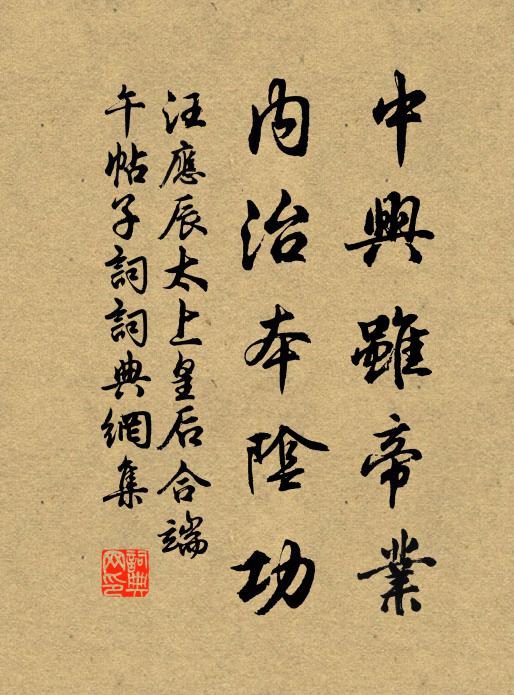 中興雖帝業
内治本陰功
汪應辰太上皇后合端
午帖子詞詞典網集
詞典
网印